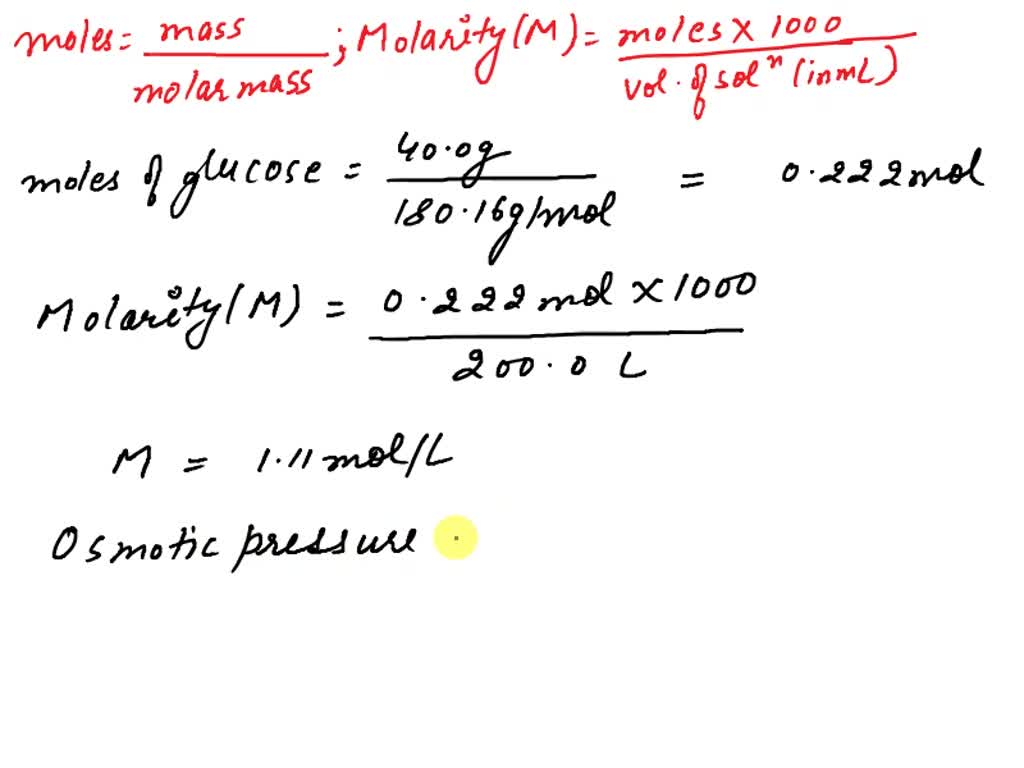 moles = mass / molar mass ; Molarity (M) = moles X 1000 / vol. of solⁿ (in mL)
moles of glucose = 40.0g / 180.16g/mol = 0.222 mol
Molarity (M) = 0.222 mol X 1000 / 200.0 L
M = 1.11 mol/L
Osmotic pressure